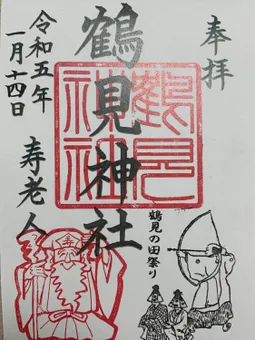 奉拝
鶴見神社
鶴見
神社
鶴見の田祭り
令和五年
一月十四日
寿老人